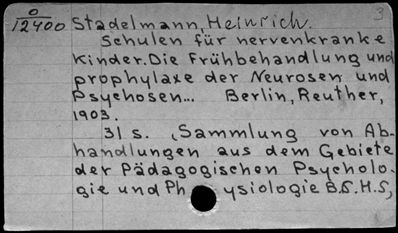 0
12400 Stadelmann, Heinrich. 3
Schulen für nervenkranke
Kinder. Die Frühbehandlung und
prophylaxe der Neurosen und
Psychosen... Berlin, Reuther,
1903.
31 s. (Sammlung von Ab-
handlungen aus dem Gebiete
der Pädagogischen Psycholo-
gie und Ph ysiologie B.6.H.5,